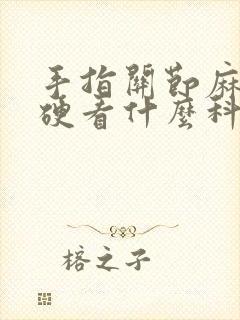 手指關節麻
硬看什麼科
榕之子